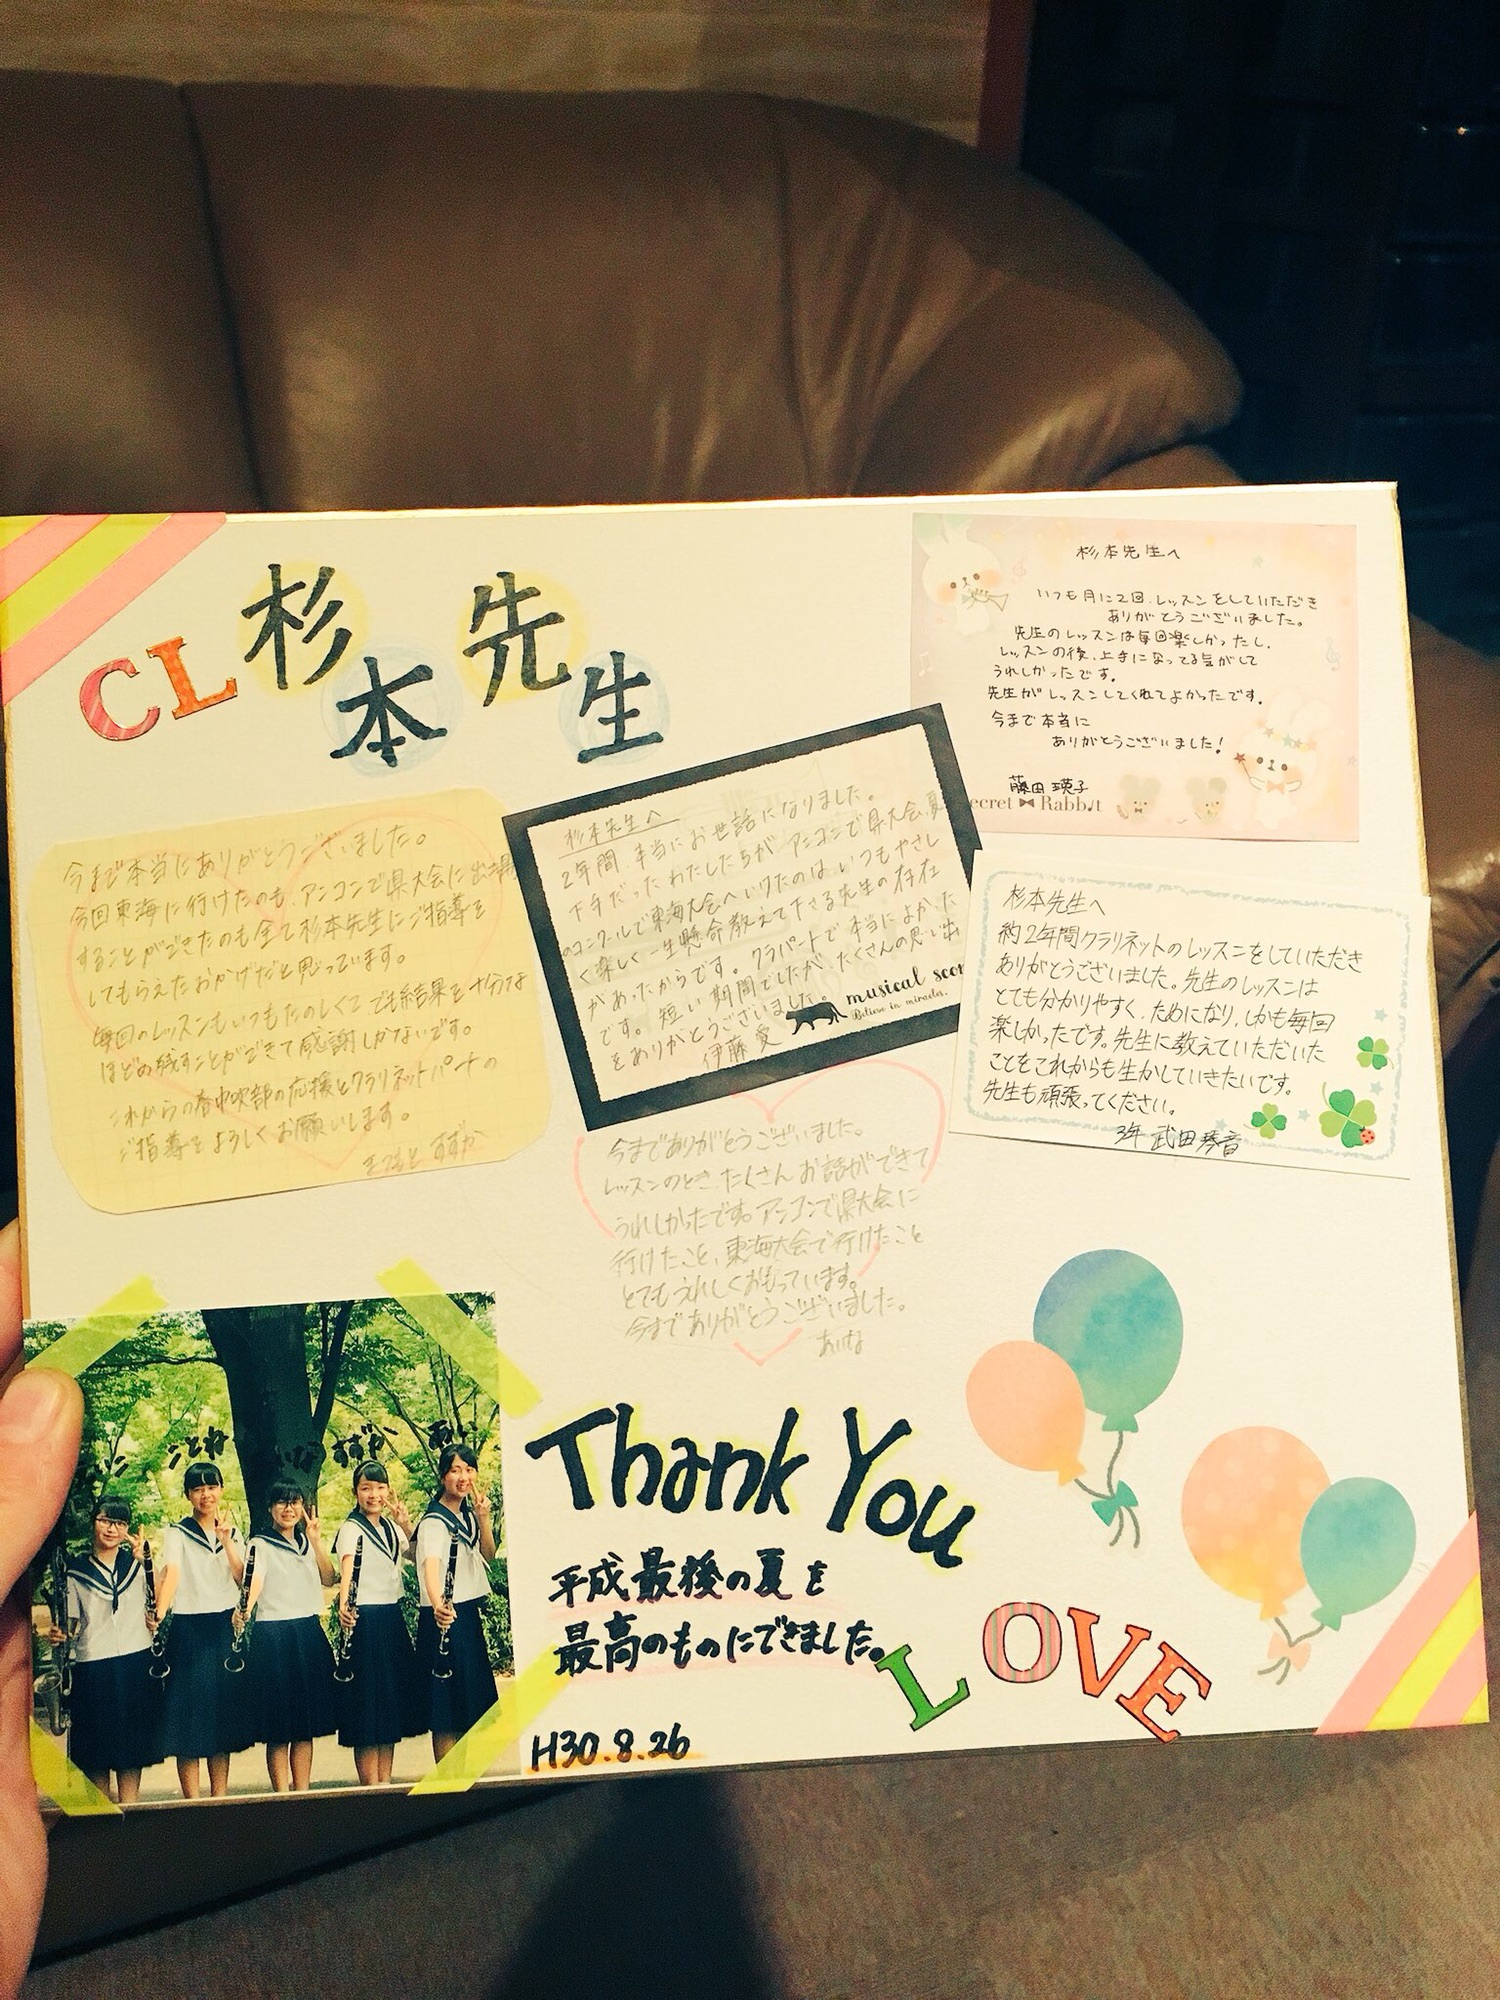 CL 杉本先生
杉本先生へ
いつも月に2回、レッスンをしていただき
ありがとうございました。
先生のレッスンは毎回楽しかったし、
レッスンの後、上手になってる気がして
うれしかったです。
先生がレッスンしてくれてよかったです。
今まで本当に
ありがとうございました!
藤田 瑛子
ecret Rabbit
今まで本当にありがとうございました。
今回東海に行けたのも、アンコンで県大会に出場
することができたのも全て杉本先生にご指導を
してもらえたおかげだと思っています。
毎回のレッスンもいつもたのしくてでも結果を十分な
ほどの残すことができて感謝しかないです。
これからの春中吹部の応援とクラリネットパートの
ご指導をよろしくお願いします。
まつもと すずか
杉本先生へ
2年間、本当にお世話になりました。
下手だったわたしたちが、アンコンで県大会、夏
のコンクールで東海大会へいけたのは、いつもやさし
く楽しく一生懸命教えて下さる先生の存在
があったからです。クラパートで本当によかった
です。短い期間でしたが、たくさんの思い出
をありがとうございました。
伊藤 愛
musical scor
Believe in miracles.
杉本先生へ
約2年間クラリネットのレッスンをしていただき
ありがとうございました。先生のレッスンは
とても分かりやすく、ためになり、しかも毎回
楽しかったです。先生に教えていただいた
ことをこれからも生かしていきたいです。
先生も頑張ってください。
3年 武田琴音
今までありがとうございました。
レッスンのとき、たくさんお話ができて
うれしかったです。アンコンで県大会に
行けたこと、東海大会で行けたこと
とてもうれしくおもっています。
今までありがとうございました。
あいな
ことね
すずか
Thank You
平成最後の夏を
最高のものにできました。
LOVE
H30.8.26